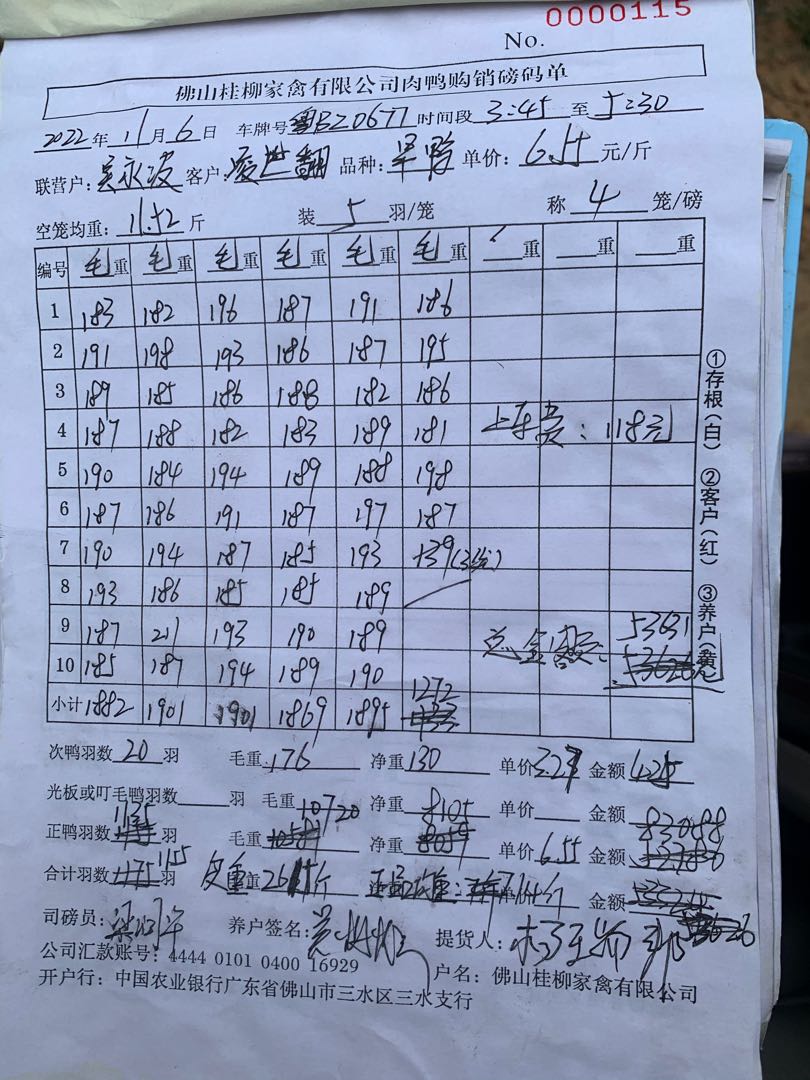 0000115
No.
佛山桂柳家禽有限公司肉鸭购销磅码单
2022年11月6日 车牌号粤BZ0677时间段3:45至5:30
联营户: 客户: 品种: 单价:6.55元/斤
空笼均重:11.52斤 装5羽/笼 称4笼/磅
编号 毛重 毛重 毛重 毛重 毛重 毛重 重 重 重
1 183 182 196 187 191 186
2 191 198 193 186 187 195
3 189 185 186 188 182 186
4 187 188 182 183 189 181 上车费:118元
5 190 184 194 189 188 198
6 187 186 191 187 197 187
7 190 194 187 185 193 139
8 193 186 185 185 189
9 187 211 193 190 189 总金额 53631
10 185 187 194 189 190
小计 1882 1901 1901 1869 1895 1272
①存根(白) ②客户(红) ③养户(黄)
次鸭羽数20羽 毛重176 净重130 单价3.27 金额425
光板或叮毛鸭羽数 羽 毛重 净重 单价 金额
正鸭羽数1135羽 毛重10720 净重8105 单价6.55 金额53088
合计羽数1155羽 皮重2615斤 金额
司磅员: 养户签名: 提货人:
公司汇款账号:4444 0101 0400 16929 户名:佛山桂柳家禽有限公司
开户行:中国农业银行广东省佛山市三水区三水支行